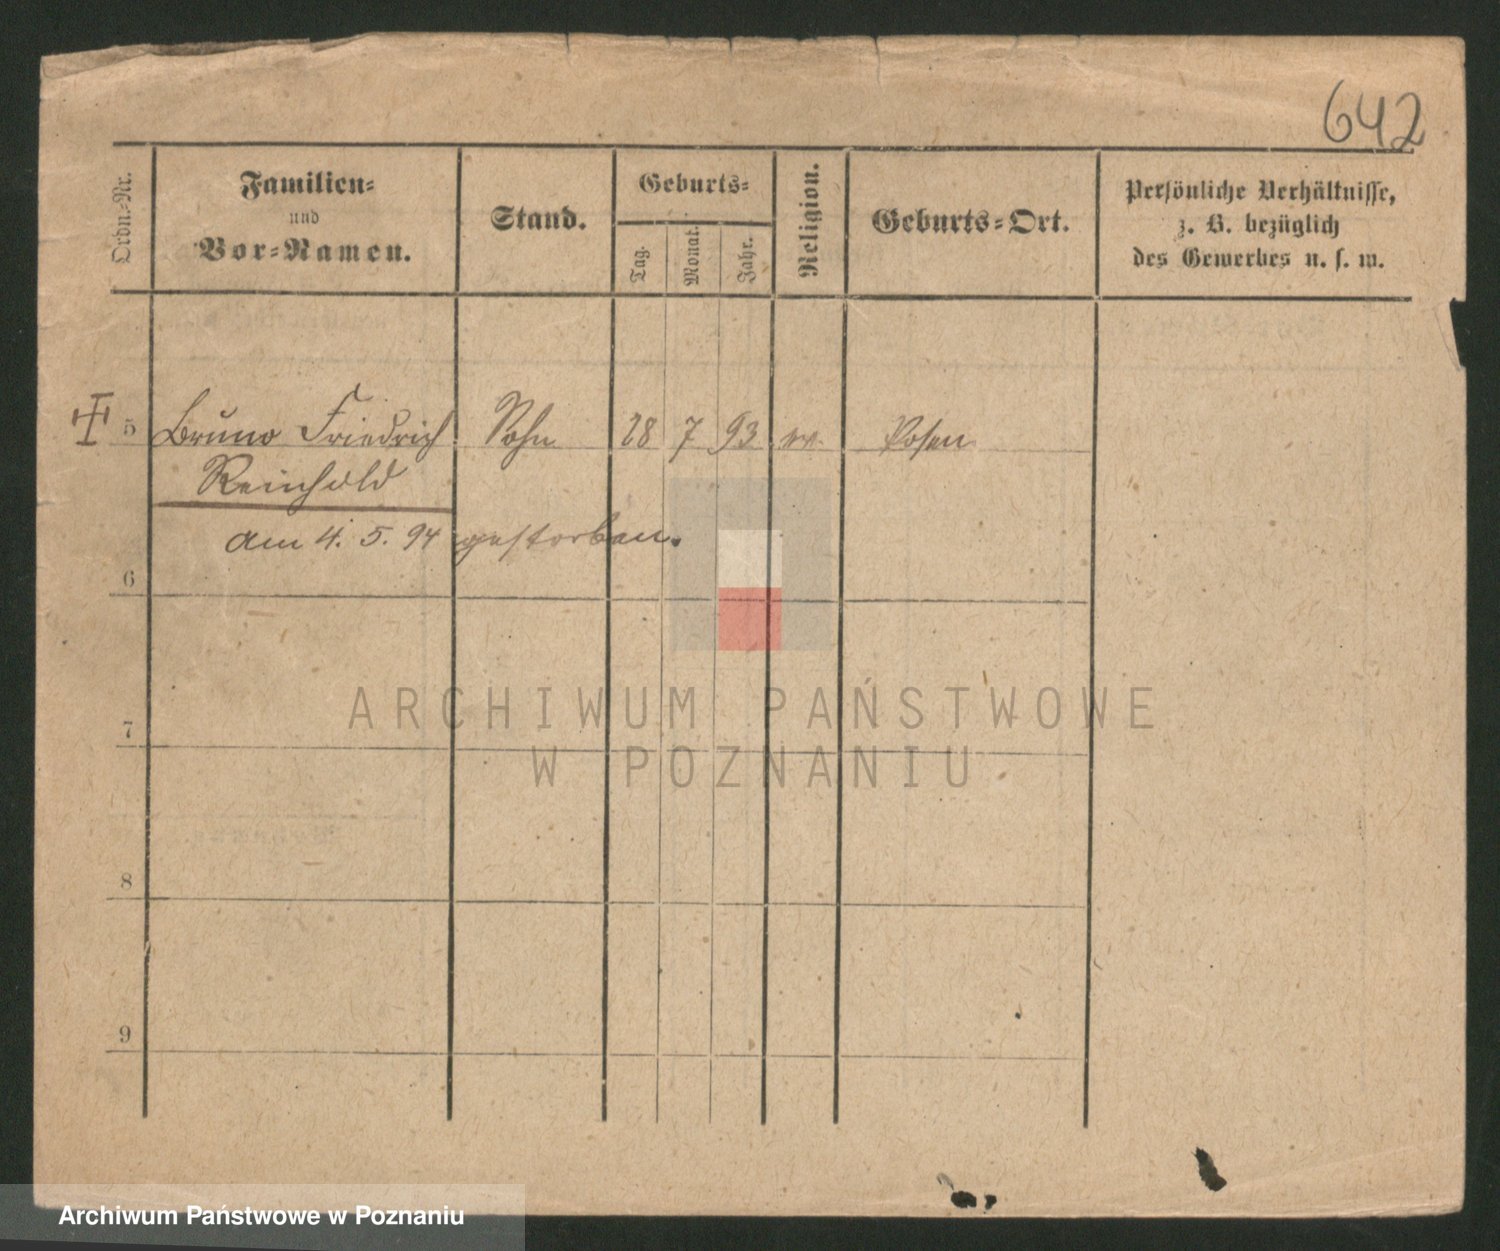 642
Ordn.-Nr.
Familien-
und
Vor-Namen.
Stand.
Geburts-
Tag.
Monat.
Jahr.
Religion.
Geburts-Ort.
Persönliche Verhältnisse,
z. B. bezüglich
des Gewerbes u. s. w.
5 Bruno Friedrich Sohn 28 7 93 ev. Posen
Reinhold
am 4. 5. 94 gestorben.
6
7
8
9
ARCHIWUM PAŃSTWOWE
W POZNANIU
Archiwum Państwowe w Poznaniu